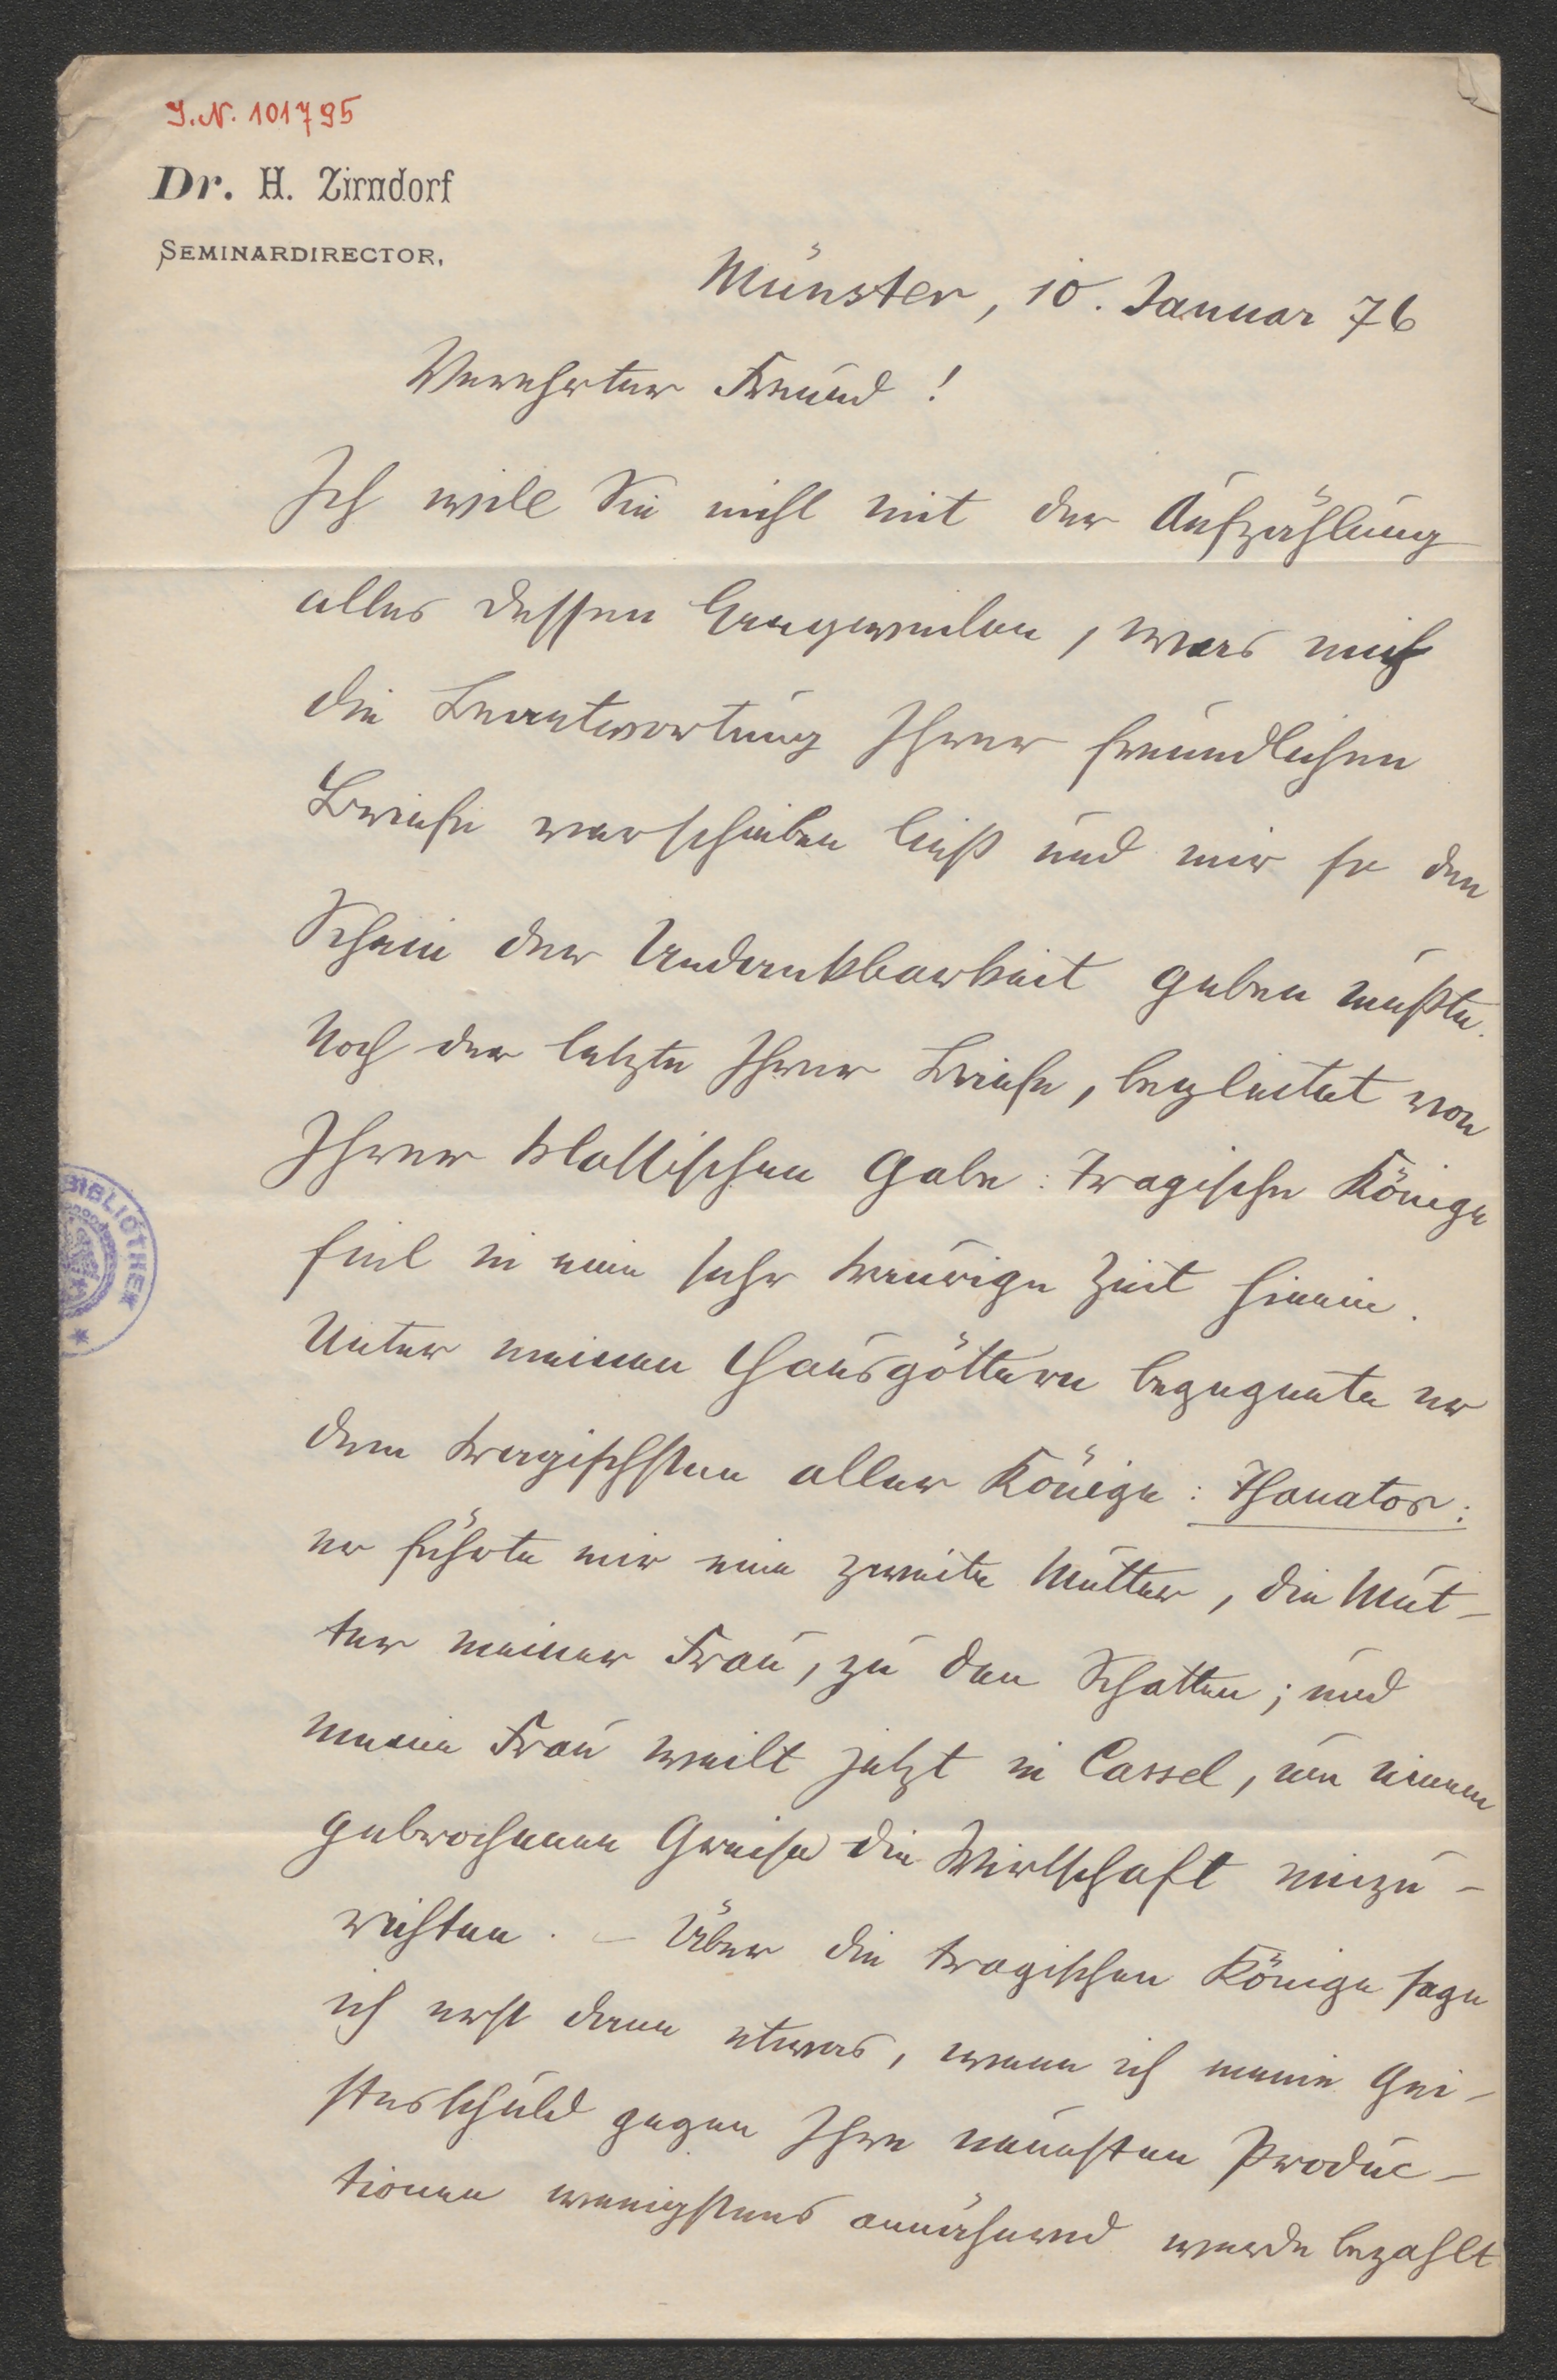 J.N. 101795
Dr. H. Zirndorf
SEMINARDIRECTOR,
Münster, 10. Januar 76
Verehrter Freund!
Ich will Sie nicht mit der Aufzählung
alles dessen langweilen, was mich
die Beantwortung Ihrer freundlichen
Briefe verschieben ließ und mir so den
Schein der Undankbarkeit geben mußte.
Noch der letzte Ihrer Briefe, begleitet von
Ihrer klassischen Gabe: Tragische Könige
fiel in eine sehr traurige Zeit hinein.
Unter meinen Hausgöttern begegnete er
dem tragischsten aller Könige: Thanatos:
er führte mir eine zweite Mutter, die Mut-
ter meiner Frau, zu den Schatten; und
meine Frau weilt jetzt in Cassel, um einem
gebrochenen Greise die Wirtschaft einzu-
richten. – Über die tragischen Könige sage
ich erst dann etwas, wenn ich meine Gei-
stesschuld gegen Ihre neuesten Produc-
tionen wenigstens annähernd werde bezahlt
BIBLIOTHEK